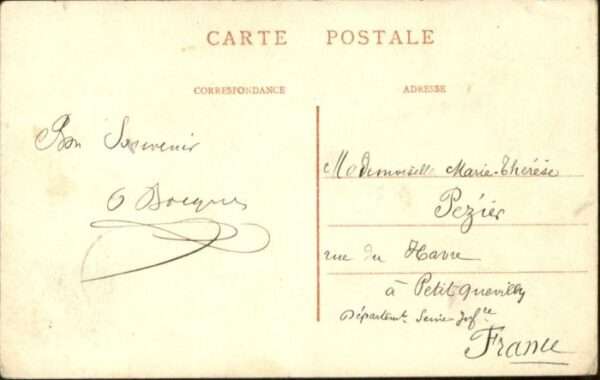 CARTE POSTALE
CORRESPONDANCE
ADRESSE
Bon Souvenir
Mademoiselle Marie-Thérèse
Pezier
rue du Havre
à Petit Quevilly
Départemt Seine-Infre
France